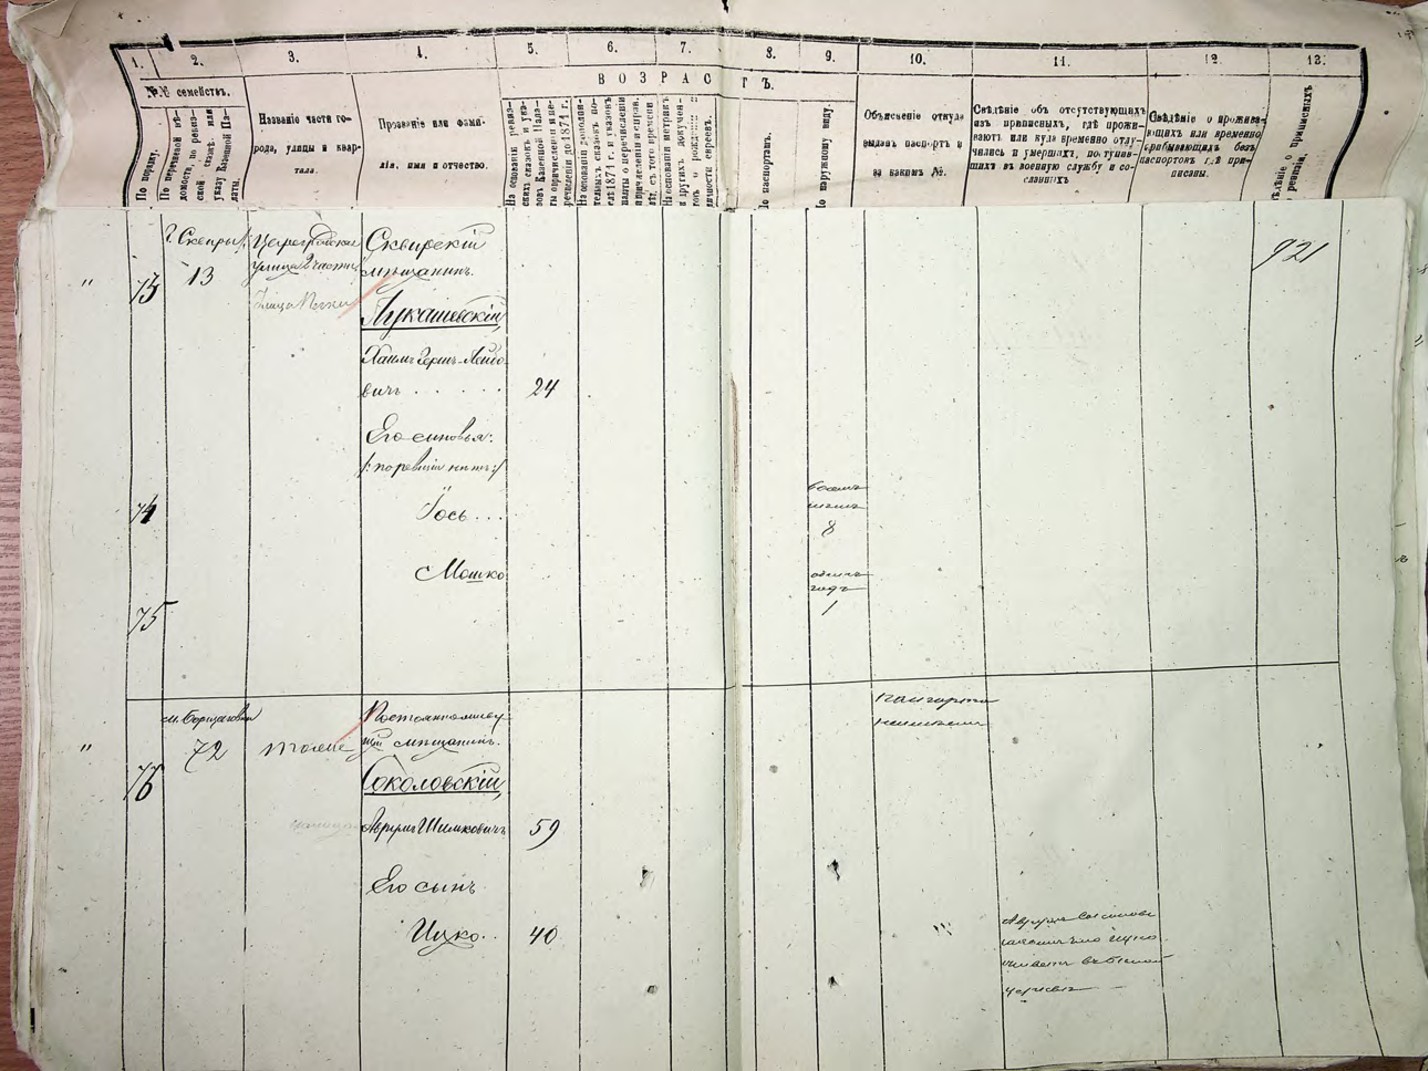 1. 2. 3. 4. 5. 6. 7. 8. 9. 10. 11. 12. 13.
В О З Р А С Т Ъ.
№№ семействъ.
По порядку.
По перечневой вѣ-
домости, по ревиз-
ской сказкѣ или
указу Казенной Па-
латы.
Названіе части го-
рода, улицы и квар-
тала.
Прозваніе или фами-
лія, имя и отчество.
На основаніи ревиз-
скихъ сказокъ и ука-
зовъ Казенной Пала-
ты о причисленіи и пе-
речисленіи до 1871 г.
На основаніи дополни-
тельныхъ сказокъ по-
слѣ 1871 г. и указовъ
палаты о перечисленіи
и причисленіи и справ.
лѣт. съ того времени.
На основаніи метрикъ
и другихъ докумен-
товъ о рожденіи и
личности евреевъ.
По паспортамъ.
По наружному виду.
Объясненіе откуда
выданъ паспортъ и
за какимъ №.
Свѣдѣніе объ отсутствующихъ
изъ приписныхъ, гдѣ прожи-
ваютъ или куда временно отлу-
чились и умершихъ, поступив-
шихъ въ военную службу и со-
сланныхъ
Свѣдѣніе о прожива-
ющихъ или временно
прибывающихъ безъ
паспортовъ гдѣ при-
писаны.
г. Сквиры
13
улица 2 части
Сквирскій
мѣщанинъ.
921
"
73
Лукашевскій,
Хаимъ Герш-Лейбо-
вичъ . . . . . 24
Его сыновья:
74
Іось . . .
восемь
лѣтъ
8
Мошко
одинъ
годъ
1
75
72
Постоянноживу-
щій мѣщанинъ.
"
76
Соколовскій,
Аврумъ Шимковичъ 59
Его сынъ
Ицко . . 40